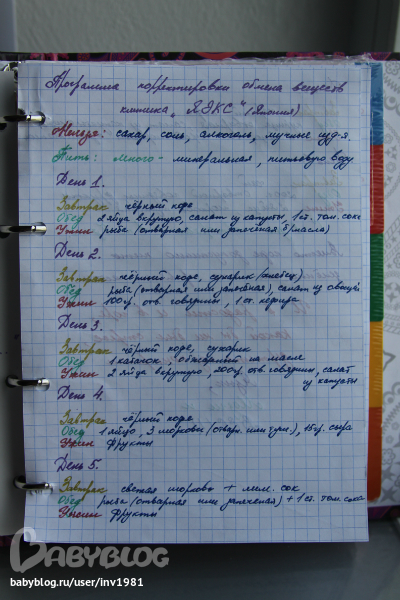 Программа корректировки обмена веществ
клиника „ЯЭКС“ (Япония)
Нельзя: сахар, соль, алкоголь, мучные изд-я.
Пить: много - минеральная, питьевую воду
День 1.
Завтрак чёрный кофе
Обед 2 яйца вкрутую, салат из капусты, 1 ст. том. сока
Ужин рыба (отварная или запечёная б/масла)
День 2.
Завтрак чёрный кофе, сухарик (хлебец)
Обед рыба (отварная или запечёная), салат из овощей
Ужин 100 гр. отв. говядины, 1 ст. кефира
День 3.
Завтрак чёрный кофе, сухарик
Обед 1 кабачок, обжареный на масле
Ужин 2 яйца вкрутую, 200гр. отв. говядины, салат
из капусты
День 4.
Завтрак чёрный кофе
Обед 1 яйцо, 3 моркови (отварн. или туш.), 15 гр. сыра
Ужин фрукты
День 5.
Завтрак свежая морковь + лим. сок
Обед рыба (отварная или запечёная) + 1 ст. том. сока
Ужин фрукты
BABYBLOG
babyblog.ru/user/inv1981